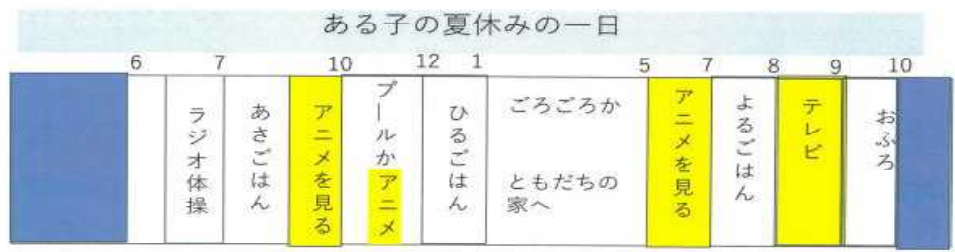 ある子の夏休みの一日
6 7 10 12 1 5 7 8 9 10
ラジオ体操
あさごはん
アニメを見る
プールかアニメ
ひるごはん
ごろごろか
ともだちの
家へ
アニメを見る
よるごはん
テレビ
おふろ